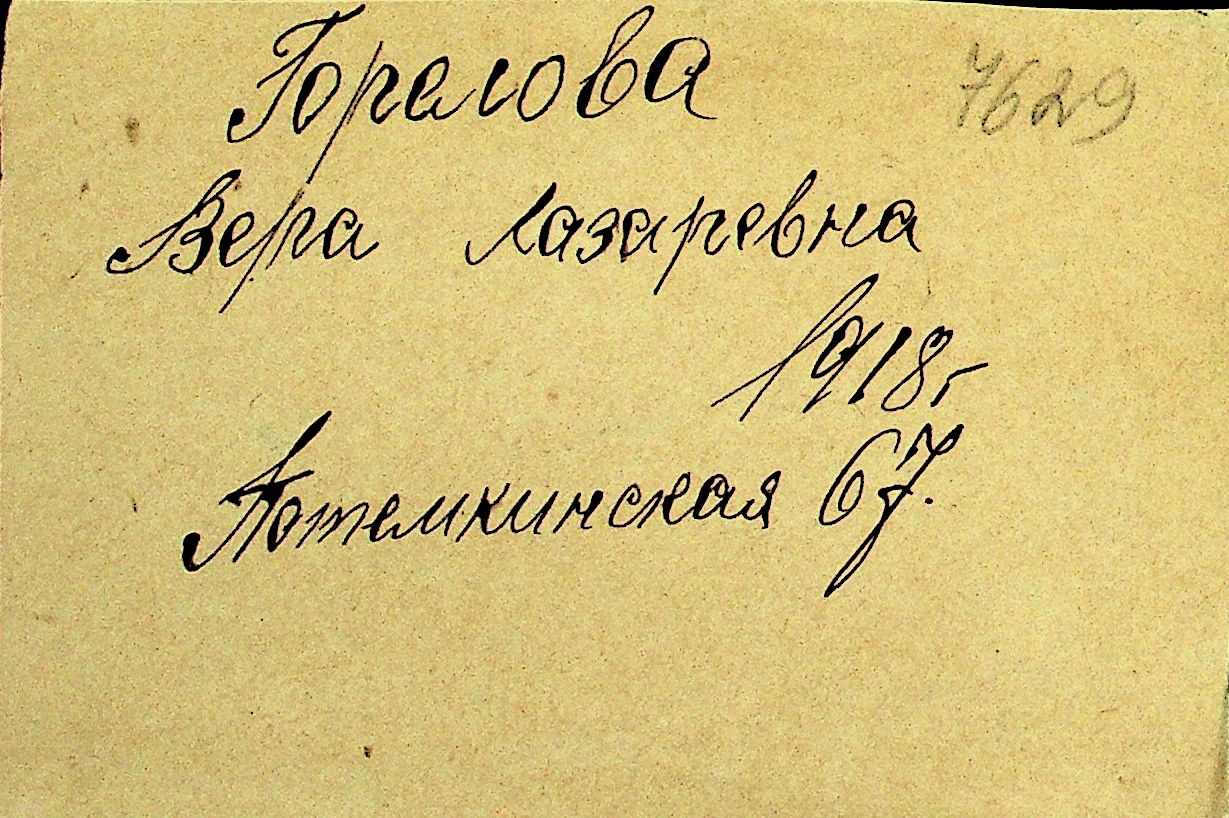 Горелова 7629
Вера Лазаревна
1918 г
Потемкинская 67.